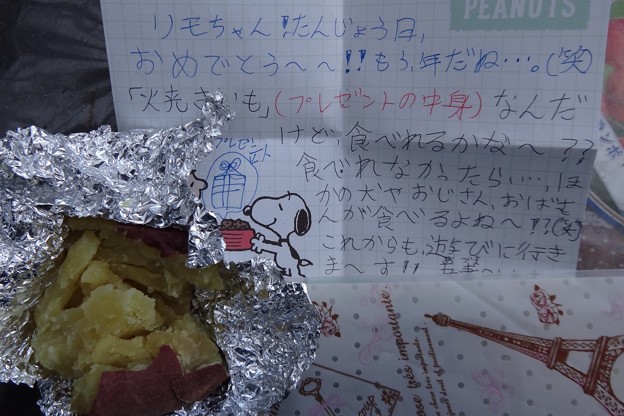 PEANUTS
リモちゃん!たんじょう日,
おめでとう〜〜!!もう、年だね…。(笑)
「火焼きいも」(プレゼントの中身)なんだ
けど食べれるかな〜??
プレゼント
食べれなかったらい…,ほ
かの犬やおじさん,おばさ
んが食べるよね〜!?(笑)
これからも,遊びに行き
ま〜す!!
très importante.